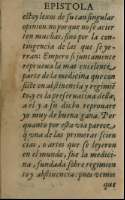 EPISTOLA
estoy lexos de su tan singular
opinion no porque no se acier
ten muchas, sino por la con-
tingencia de las que se ye-
rran: Empero si juntamente
reprouara la mas excelente
parte de la medicina que con
siste en abstinencia y regimie
to, y es la preseruatiua della,
a el y a su dicho reprouare
yo de muy buena gana. Por
quanto por esta via parece,
q vna de las primeras scien
cias, o artes que se leyeron
en el mundo, fue la medici-
na, fundada sobre regimien
to y abstinencia: pues vemos
que